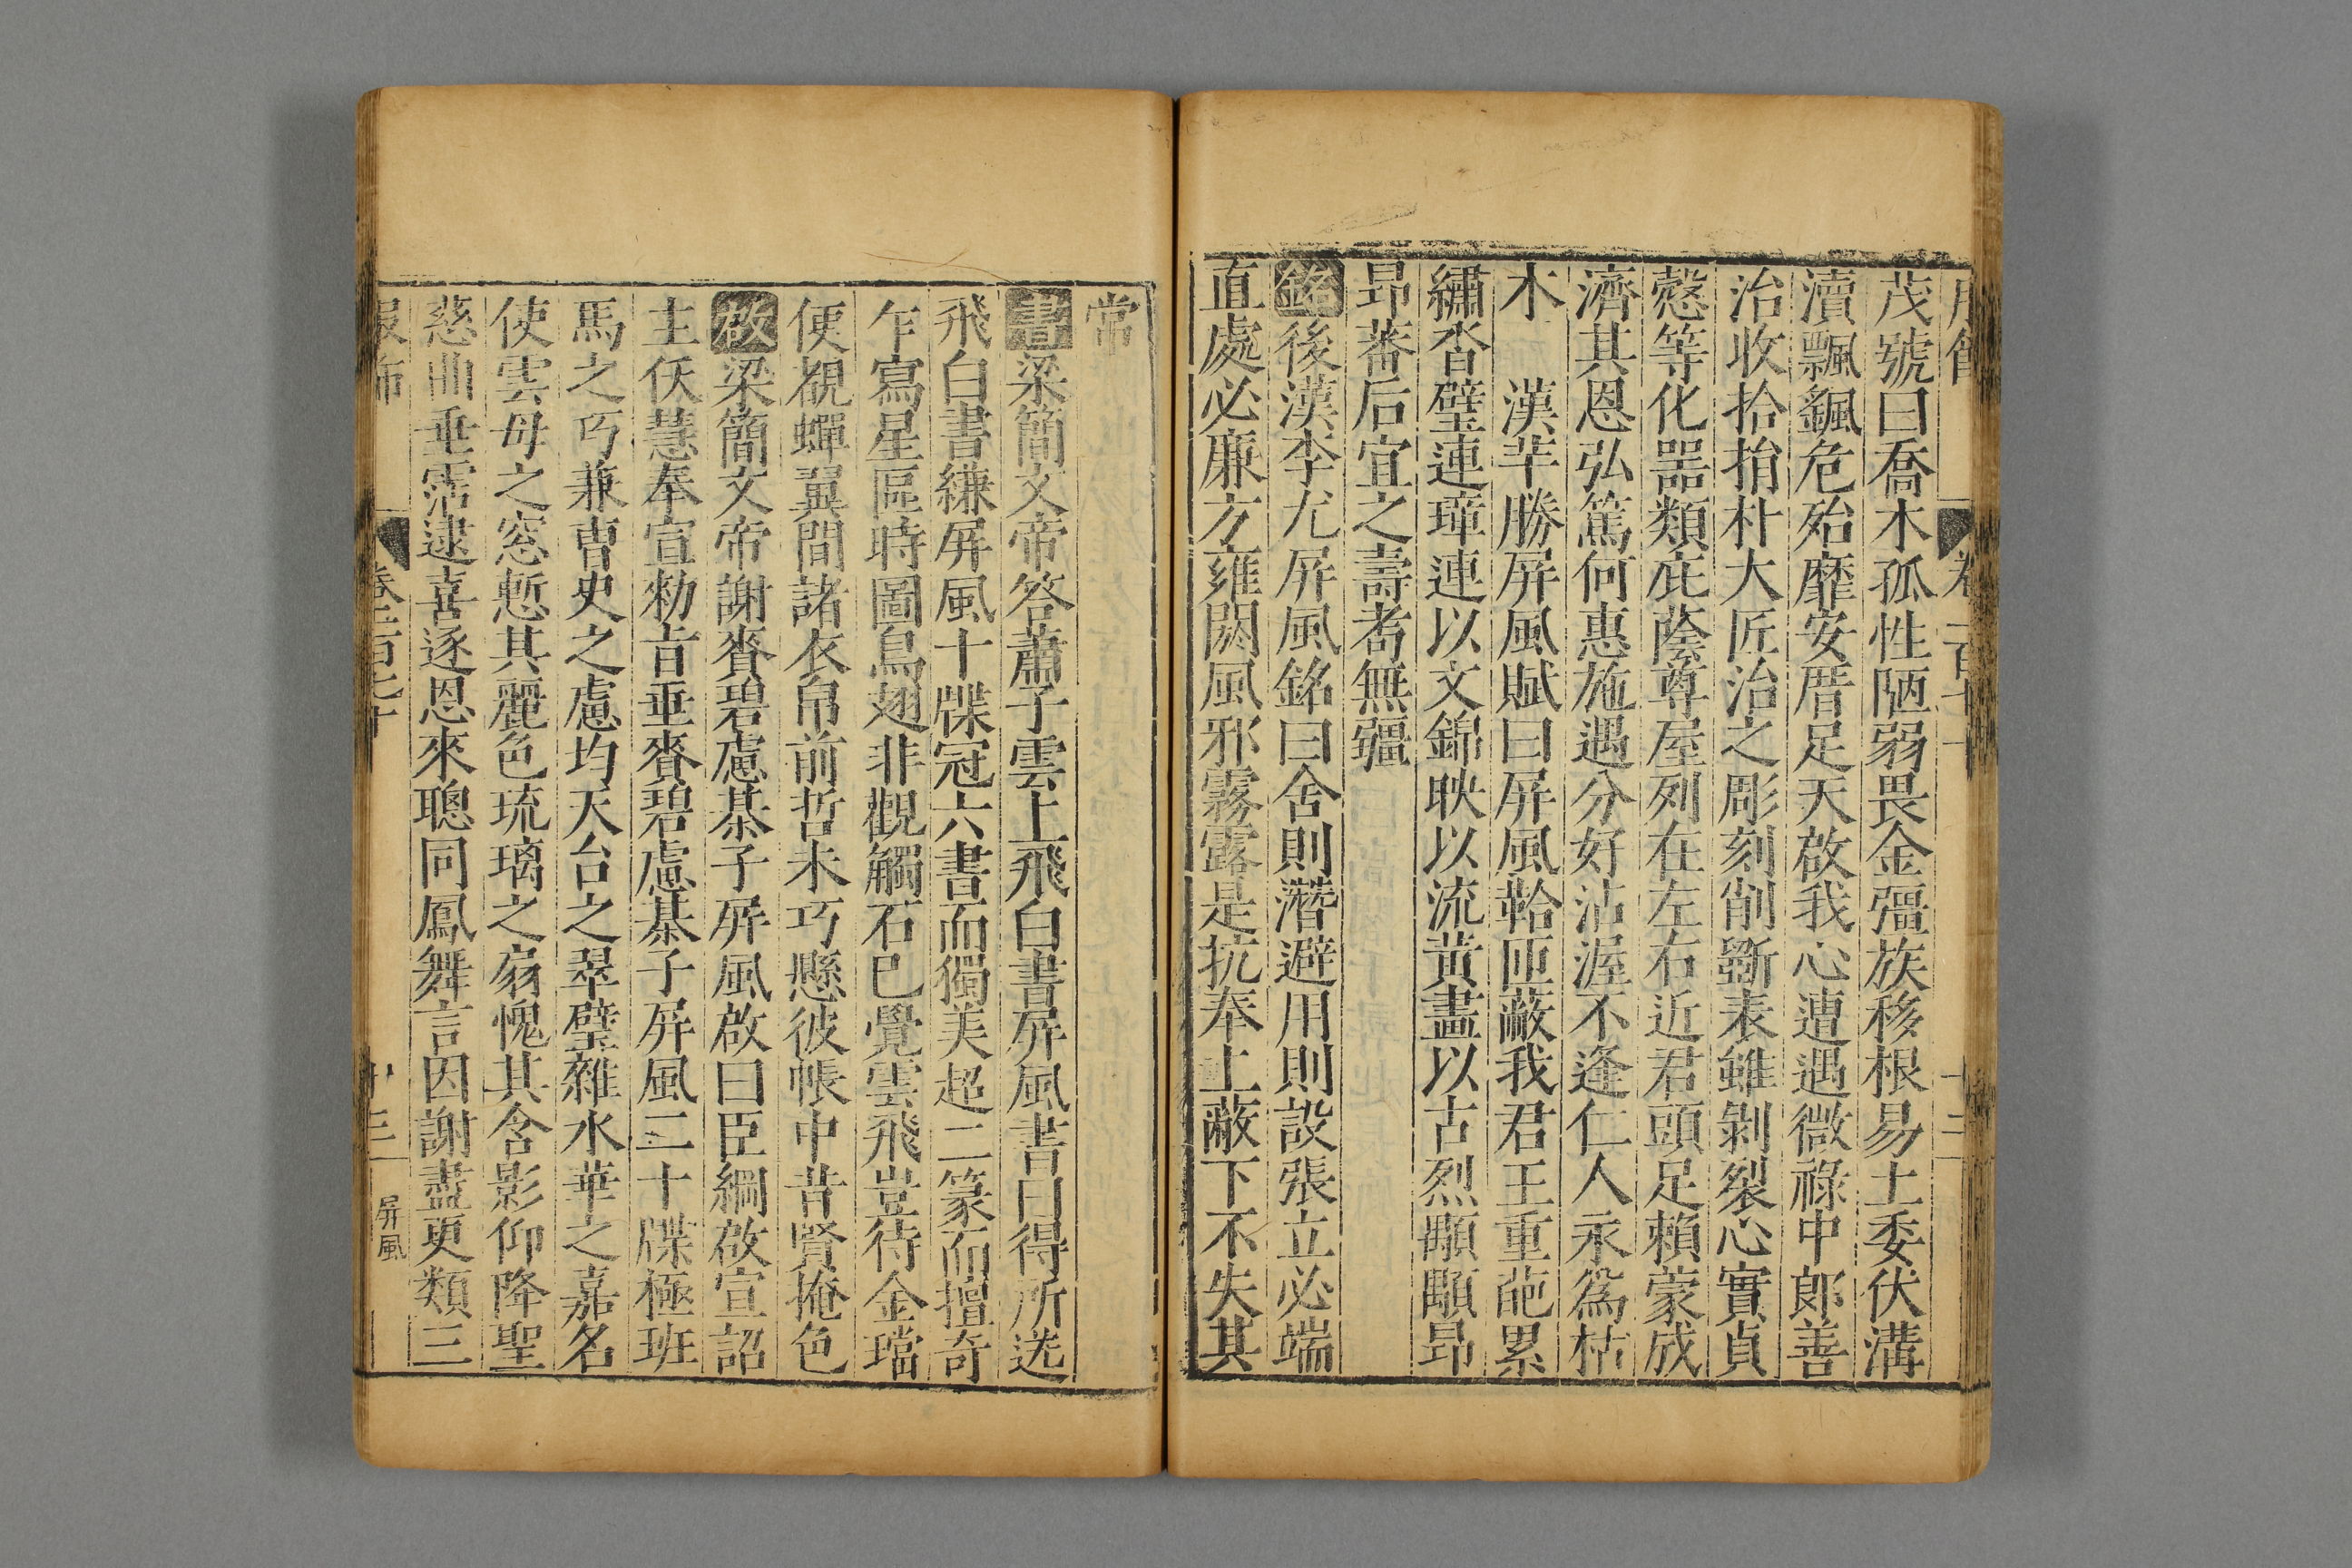 茂號曰喬木孤性陋弱畏金彊族移根易土委伏溝
瀆飄飖危殆靡安厝足天啟我心遭遇微祿中郎善
治收拾捎朴大匠治之彫刻削斲表雖剝裂心實貞
慤等化器類庇蔭尊屋列在左右近君頭足賴蒙成
濟其恩弘篤何惠施遇分好沾渥不逢仁人永為枯
木 漢羊勝屏風賦曰屏風鞈匝蔽我君王重葩累
繡沓璧連璋連以文錦映以流黃畫以古烈顒顒昂
昂蕃后宜之壽耉無彊
銘後漢李尤屏風銘曰舍則潛避用則設張立必端
直處必廉方雍閼風邪霧露是抗奉上蔽下不失其
常
書梁簡文帝答蕭子雲上飛白書屏風書曰得所送
飛白書縑屏風十牒冠六書而獨美超二篆而擅奇
乍寫星區時圖鳥翅非觀觸石已覺雲飛豈待金璫
便覩蟬翼間諸衣帛前哲未巧懸彼帳中昔賢掩色
啟梁簡文帝謝賚碧慮棊子屏風啟曰臣綱啟宣詔
主伕慧奉宣勑旨垂賚碧慮棊子屏風二十牒極班
馬之巧兼曹史之慮均天台之翠壁雜水華之嘉名
使雲母之窓慙其麗色琉璃之扇愧其含影仰降聖
慈曲垂霑逮喜逐恩來聰同鳳舞言因謝盡更類三
服飾 卷三百七十 十三 屏風